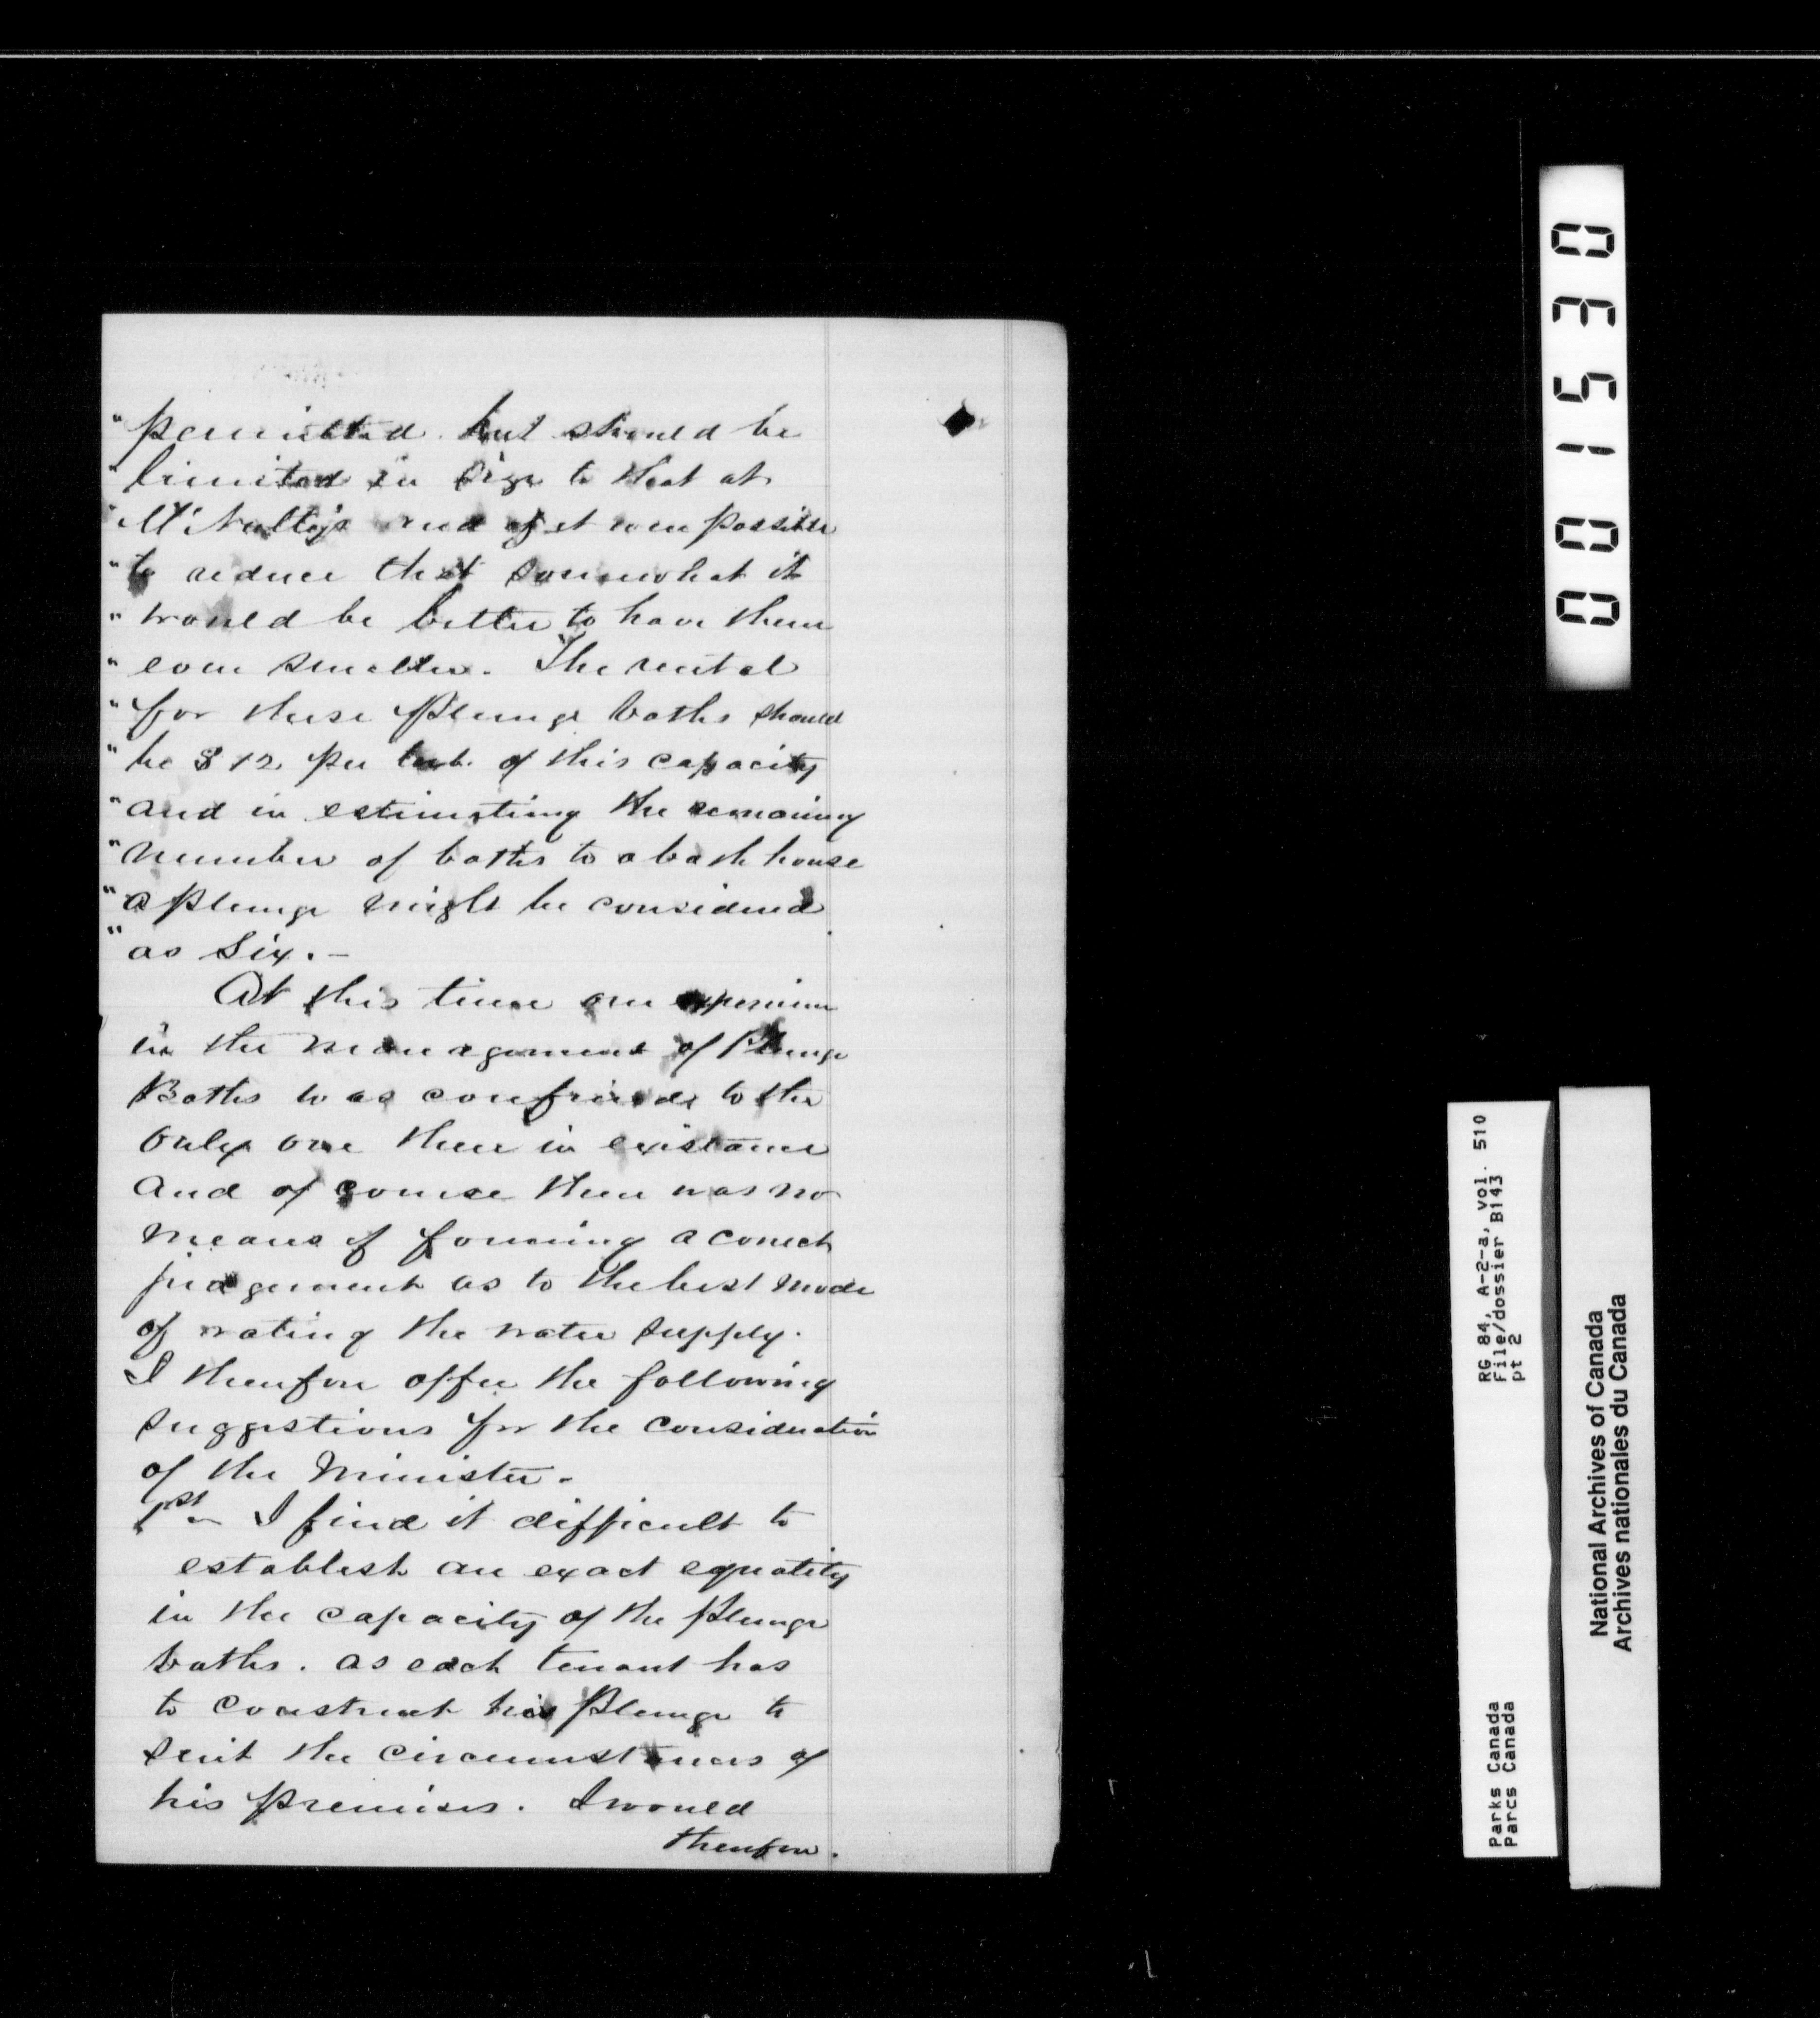 " permitted but should be
" limited in size to that at
" McNulty's and if it were possible
" to reduce that somewhat it
" would be better to have them
" even smaller. The rental
" for these plunge baths should
" be $12 per tub of this capacity
" and in estimating the remaining
" number of baths to a bath house
" a plunge might be considered
" as Six. –
At this time our experience
in the management of Plunge
Baths was confined to the
only one then in existance
and of course there was no
means of forming a correct
judgement as to the best mode
of rating the water supply.
I therefore offer the following
suggestions for the consideration
of the Minister.
1st – I find it difficult to
establish an exact equality
in the capacity of the plunge
baths. as each tenant has
to construct his plunge to
suit the circumstances of
his premises. I would
therefore.
001530
RG 84, A-2-a, vol. 510
File/dossier B143
pt 2
Parks Canada
Parcs Canada
National Archives of Canada
Archives nationales du Canada